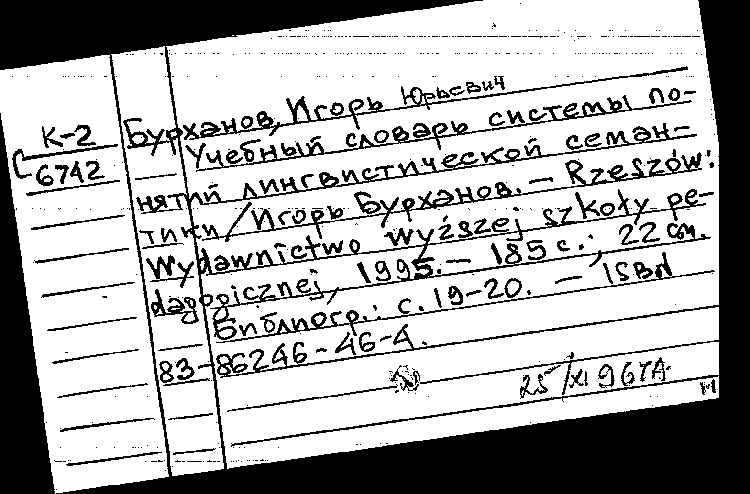 К-2
6742
Бурханов, Игорь Юрьевич
Учебный словарь системы по-
нятий лингвистической семан-
тики / Игорь Бурханов. – Rzeszów:
Wydawnictwo wyższej szkoły pe-
dagogicznej, 1995. – 185 с.; 22 см.
Библиогр.: с. 19-20. – ISBN
83-86246-46-4.
25/XI 96